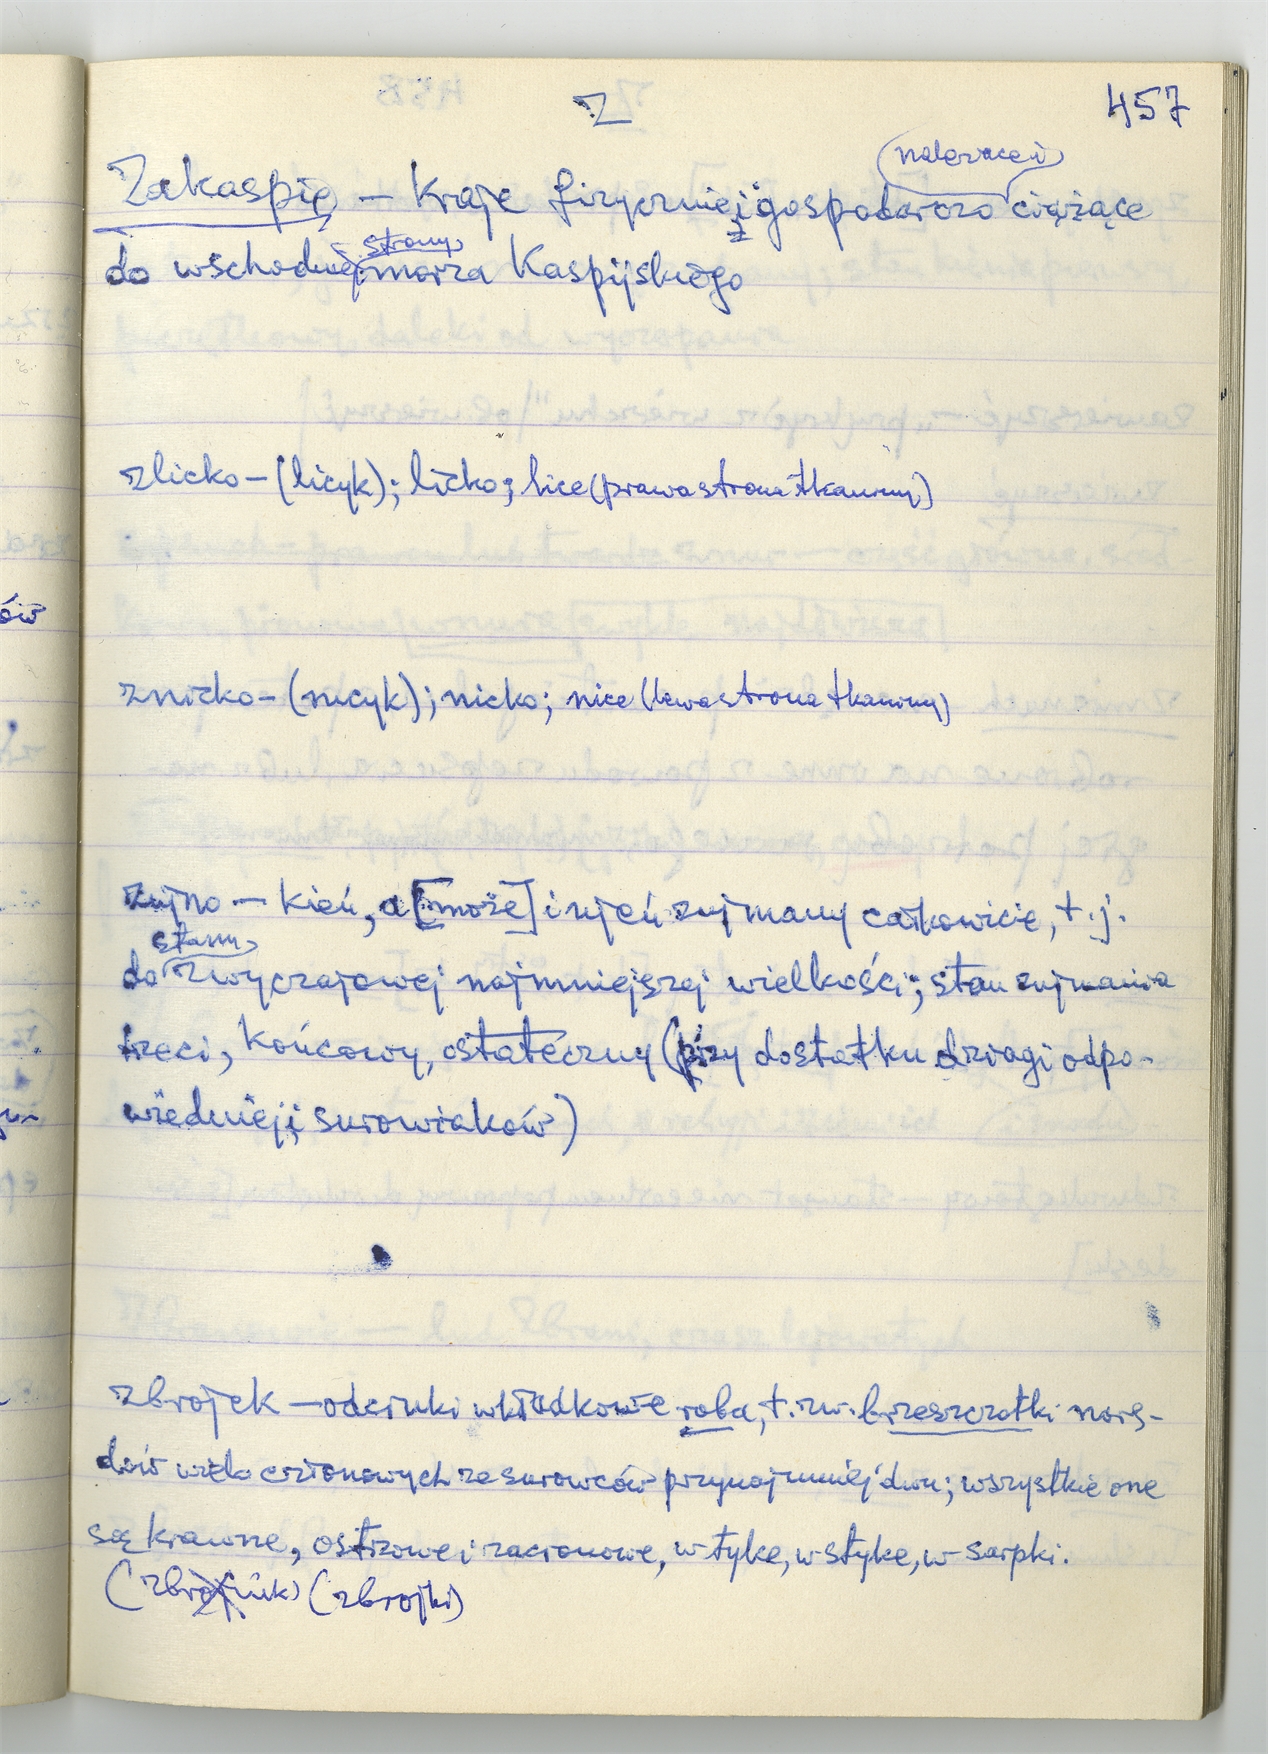 Z
457
należące i
Zakaspie – kraje fizycznie i gospodarczo ciążące
strony
do wschodniej morza Kaspijskiego
zlicko – (licyk); licko; lice (prawa strona tkaniny)
znicko – (nicyk); nicko; nice (lewa strona tkaniny)
zujno – kień, a [może] i ujeń zujmany całkowicie, t.j.
stanu
do zwyczajowej najmniejszej wielkości; stan zujmania
trzeci, końcowy, ostateczny (przy dostatku drzazgi odpo-
wiedniej i surowiaków)
zbrojek – odcinki wkładkowe roba, t.zw. brzeszczotki narzę-
dzi wielo członowych ze surowców przynajmniej dwu; wszystkie one
są krawne, ostrzowe i zacionowe, w tyke, w styke, w sarpki.
(zbrojnik) (zbrojki)